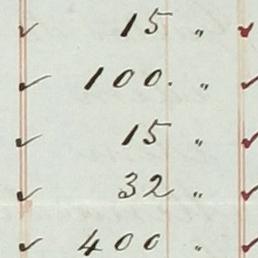 ✓ 15 " ✓
✓ 100. " ✓
✓ 15 " ✓
✓ 32 " ✓
✓ 400 " ✓